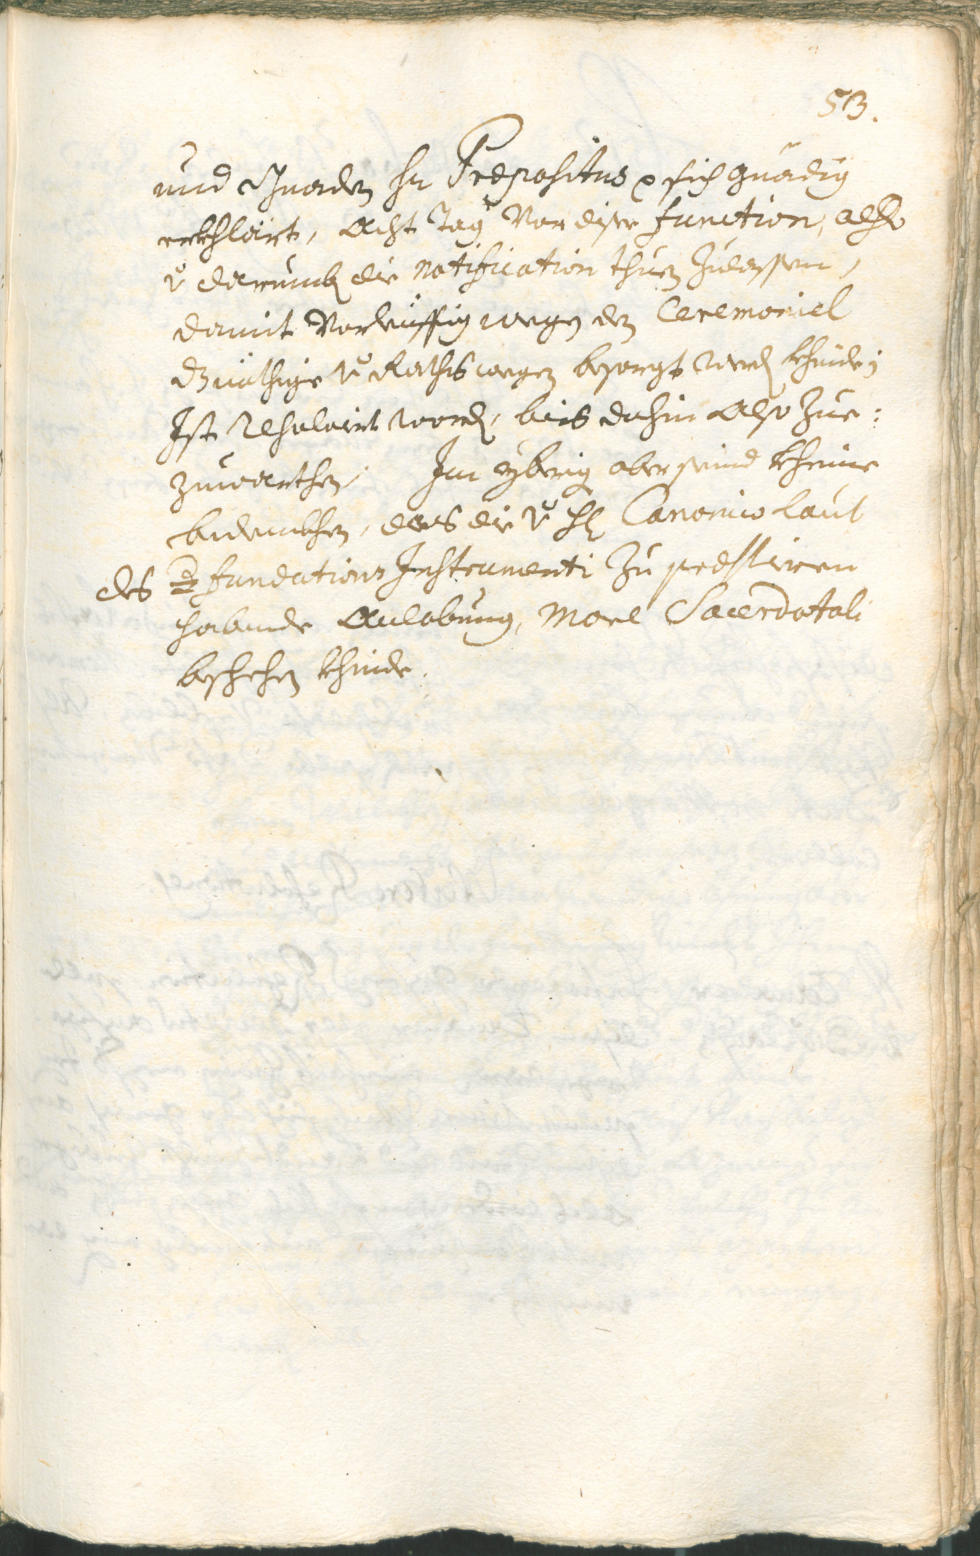 53.
und Gnaden hr Præpositus sich gnädig
erkhlärt, Acht Tag Vor diser function, alhir
darumb die notification thuen Zulassen,
damit Vorleuffig wegen des Ceremoniel
Nöthige Raths wegen besorgt werd khinde;
Ist resolvirt word, bis dahin also Zue:
zuwarthen. Im ybrig aber seind kheine
bedenkhen, das die H Canonico laut
des fundations Instrumenti Zu præstiren
habende Anlobung, More Sacerdotali
beschehen khinde.